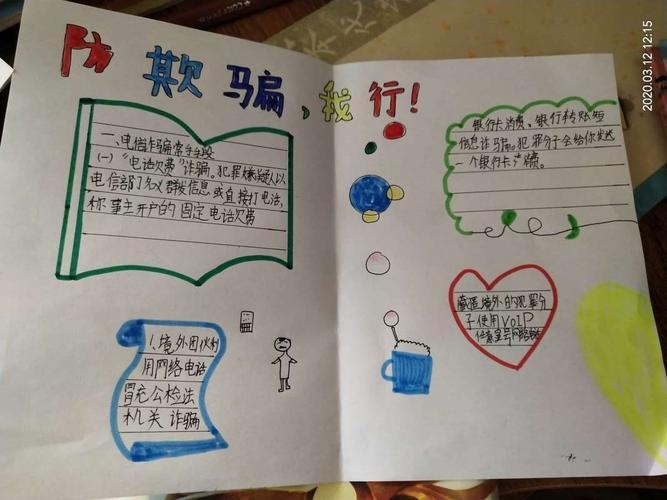 防欺骗，我行！
一、电信诈骗常手段
(一) "电话欠费"诈骗。犯罪嫌疑人以
电信部门名义群发信息或直接打电话,
称事主开户的固定电话欠费
银行卡消费、银行转账短
信息诈骗。犯罪分子会给你发送
一个银行卡消费。
1、境外团伙利
用网络电话
冒充公检法
机关诈骗
境外的犯罪分
子使用VOIP
2020.03.12 12:15